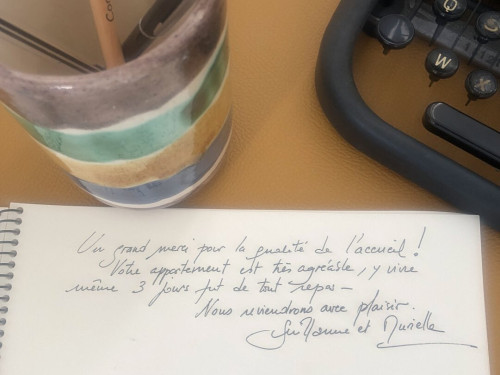 Co
Q
W
X
Un grand merci pour la qualité de l'accueil !
Votre appartement est très agréable, y vivre
même 3 jours fut de tout repos -
Nous reviendrons avec plaisir.
Guillaume et Murielle